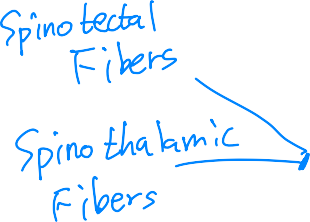 Spinotectal
Fibers
Spinothalamic
Fibers